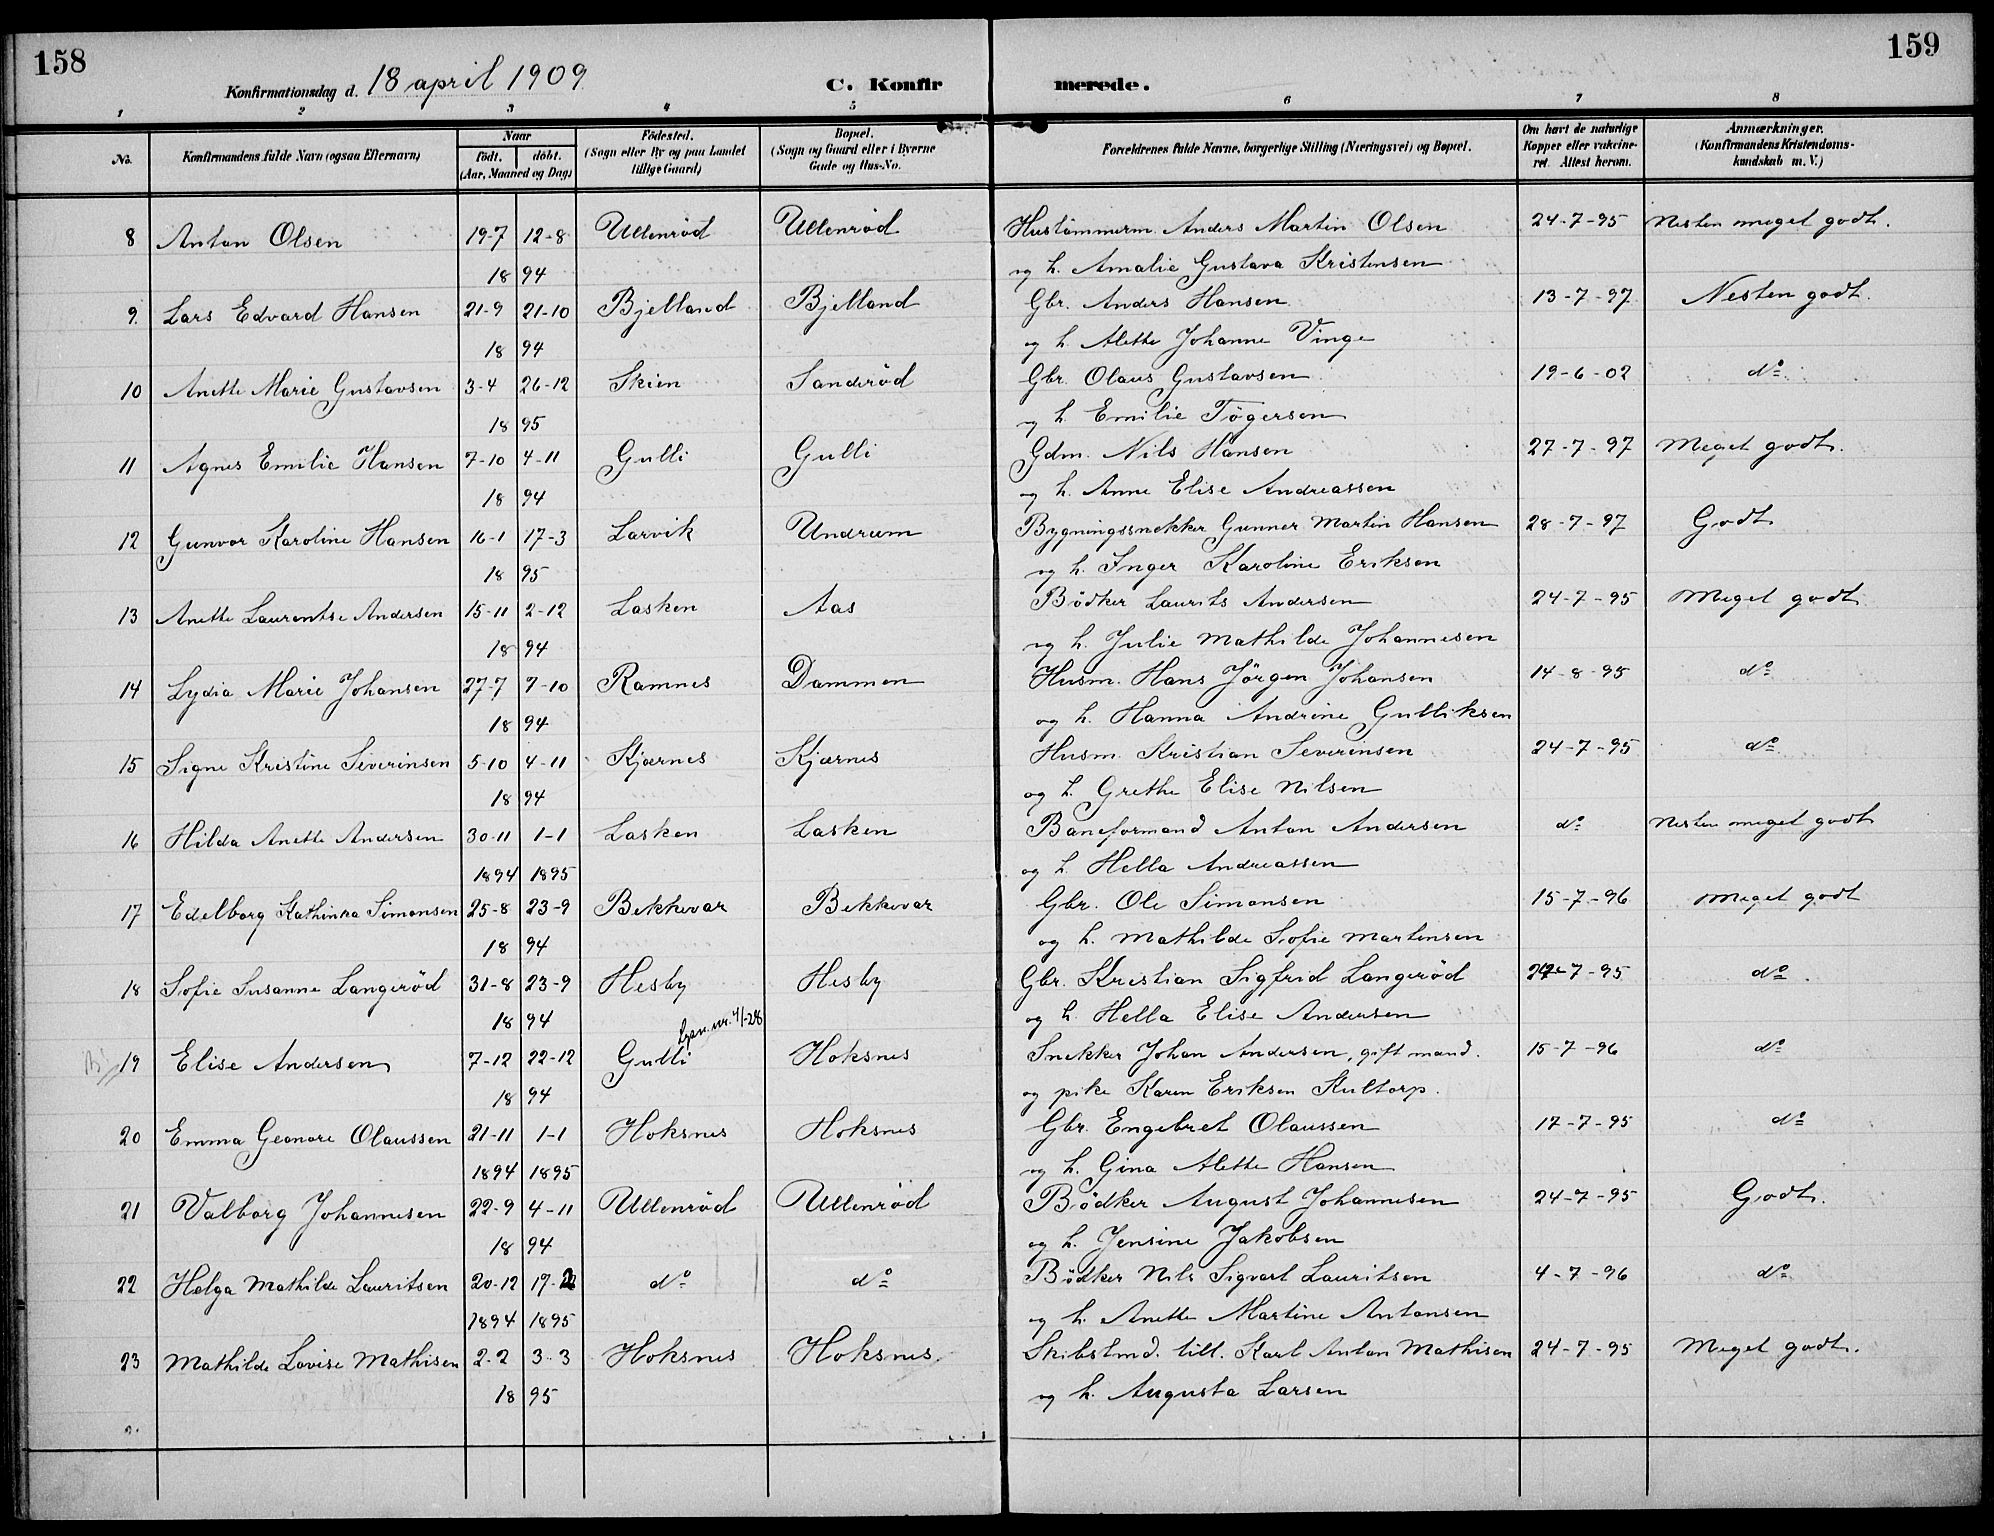 158
159
Konfirmationsdag d. 18 april 1909
C. Konfirmerede.
1 2 3 4 5 6 7 8
No.
Konfirmandens fulde Navn (ogsaa Efternavn)
Naar
födt. döbt.
(Aar, Maaned og Dag)
Födested.
(Sogn eller By og paa Landet
tillige Gaard)
Bopæl.
(Sogn og Gaard eller i Byerne
Gade og Hus-No.
Forældrenes fulde Navne, borgerlige Stilling (Næringsvei) og Bopæl.
Om havt de naturlige
Kopper eller vakcine-
ret. Attest herom.
Anmærkninger.
(Konfirmandens Kristendoms-
kundskab m. V.)
8 Anton Olsen 19-7 12-8 Ullenröd Ullenröd Hustömmerm. Anders Martin Olsen 24-7-95 Nesten meget godt.
18 94 og h. Amalie Gustava Kristensen
9. Lars Edvard Hansen 21-9 21-10 Bjelland Bjelland Gbr. Anders Hansen 13-7-97 Nesten godt.
18 94 og h. Alette Johanne Vinge
10 Anette Marie Gustavsen 3-4 26-12 Skien Sanderöd Gbr. Olaus Gustavsen 19-6-02 do
18 95 og h. Emilie Tögersen
11 Agnes Emilie Hansen 7-10 4-11 Gulli Gulli Gdm. Nils Hansen 27-7-97 Meget godt.
18 94 og h. Anne Elise Andreassen
12 Gunvor Karoline Hansen 16-1 17-3 Larvik Undrum Bygningssnekker Gunner Martin Hansen 28-7-97 Godt
18 95 og h. Inger Karoline Eriksen
13 Anette Laurentse Andersen 15-11 2-12 Lasken Aas Bödker Laurits Andersen 24-7-95 Meget godt
18 94 og h. Julie Mathilde Johannesen
14 Lydia Marie Johansen 27-7 7-10 Ramnes Dammen Husm. Hans Jörgen Johansen 14-8-95 do
18 94 og h. Hanna Andrine Gulliksen
15 Signe Kristine Severinsen 5-10 4-11 Kjærnes Kjærnes Husm. Kristian Severinsen 24-7-95 do
18 94 og h. Grethe Elise Nilsen
16 Hilda Anette Andersen 30-11 1-1 Lasken Lasken Baneformand Anton Andersen do Nesten meget godt
1894 1895 og h. Hella Andreassen
17 Edelborg Kathinka Simonsen 25-8 23-9 Bekkevar Bekkevar Gbr. Ole Simonsen 15-7-96 Meget godt
18 94 og h. Mathilde Sofie Martinsen
18 Sofie Susanne Langeröd 31-8 23-9 Hesby Hesby Gbr. Kristian Sigfrid Langeröd 24-7-95 do.
18 94 og h. Hella Elise Andersen
19 Elise Andersen 7-12 22-12 Gulli Hoksnes Snekker Johan Andersen, gift mand. 15-7-96 do
18 94 og pike Karen Eriksen Kultorp.
20 Emma Geonore Olaussen 21-11 1-1 Hoksnes Hoksnes Gbr. Engebret Olaussen 17-7-95 do
1894 1895 og h. Gina Alette Hansen
21 Valborg Johannesen 22-9 4-11 Ullenröd Ullenröd Bödker August Johannesen 24-7-95 Godt.
18 94 og h. Jensine Jakobsen
22 Helga Mathilde Lauritsen 20-12 17-2 do do Bödker Nils Sigvart Lauritsen 4-7-96 do
1894 1895 og h. Anette Martine Antonsen
23 Mathilde Lovise Mathisen 2-2 3-3 Hoksnes Hoksnes. Skibstmd. till. Karl Anton Mathisen 24-7-95 Meget godt.
18 95 og h. Augusta Larsen